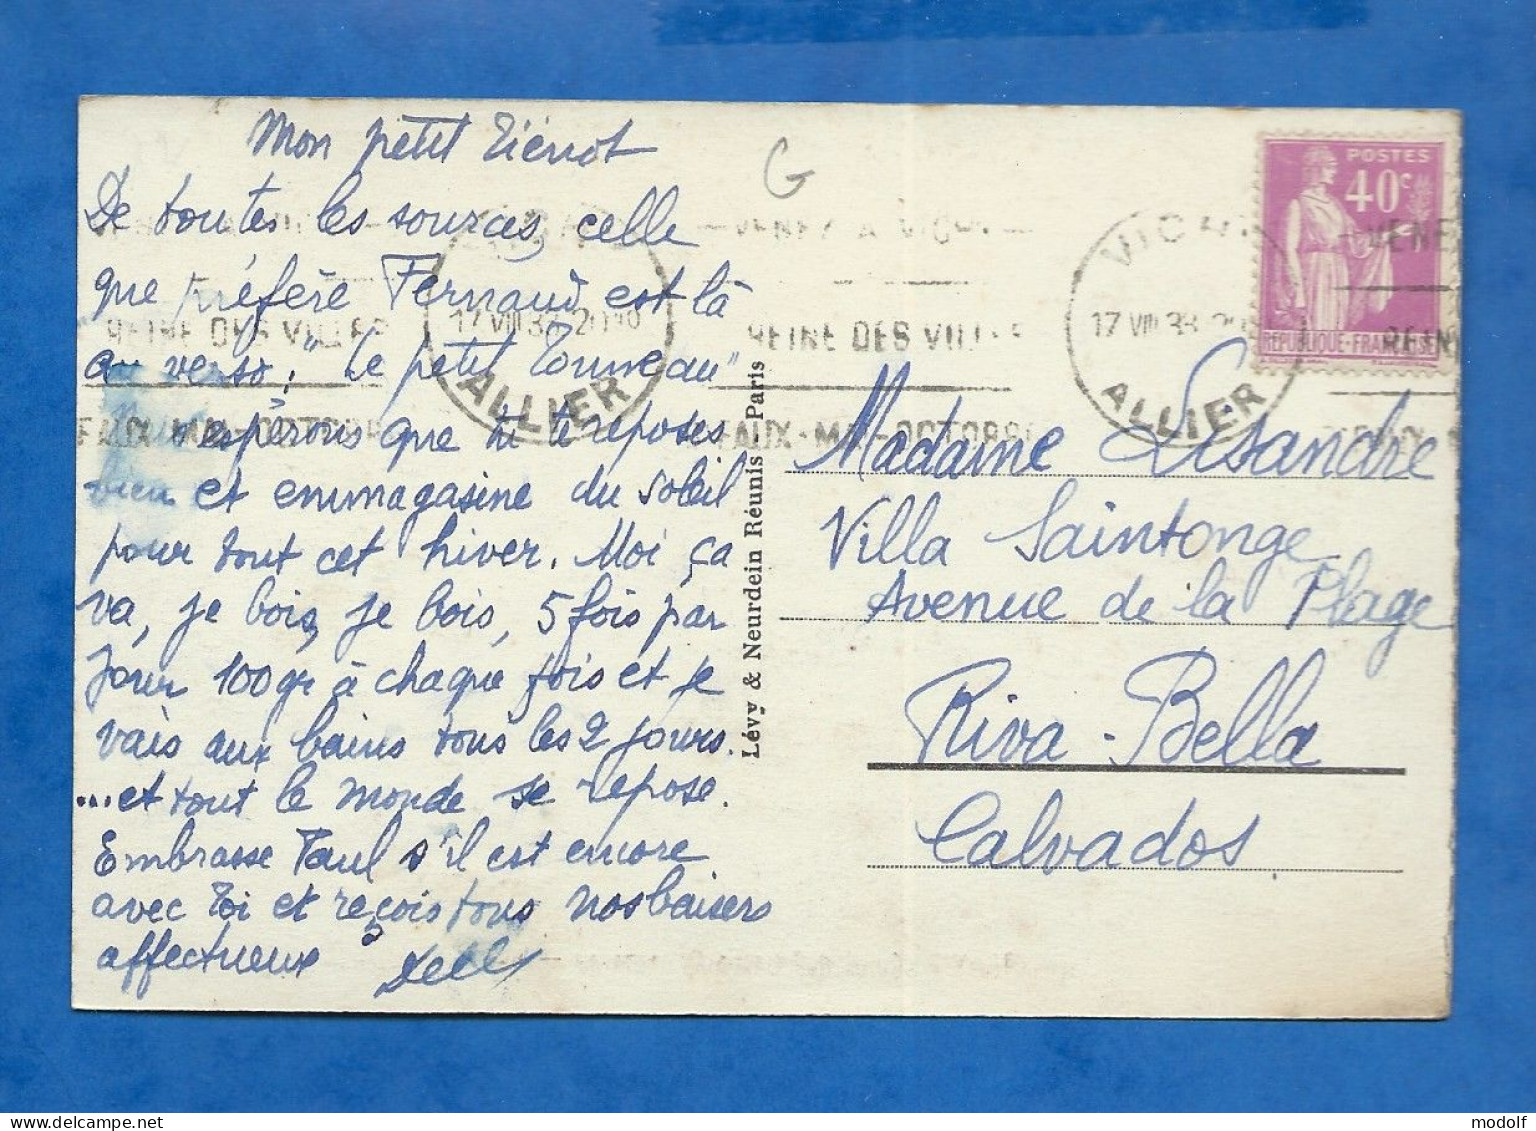 Mon petit Tiénot
De toutes les sources, celle
que préfère Fernand est là
au verso: "Le petit Tonneau"
Nous espérons que tu te reposes
bien et emmagasine du soleil
pour tout cet hiver. Moi, ça
va, je bois, je bois, 5 fois par
jour 100 gr à chaque fois et je
vais aux bains tous les 2 jours.
...et tout le monde se repose.
Embrasse Paul s'il est encore
avec toi et reçois tous nos baisers
affectueux
G
Lévy & Neurdein Réunis Paris
POSTES
40c
REPUBLIQUE-FRANÇAISE
VICHY
17 VIII 38
ALLIER
VENEZ A VICHY
REINE DES VILLES
EAUX-MAI-OCTOBRE
Madame Lisandre
Villa Saintonge
Avenue de la Plage
Riva-Bella
Calvados
modolf